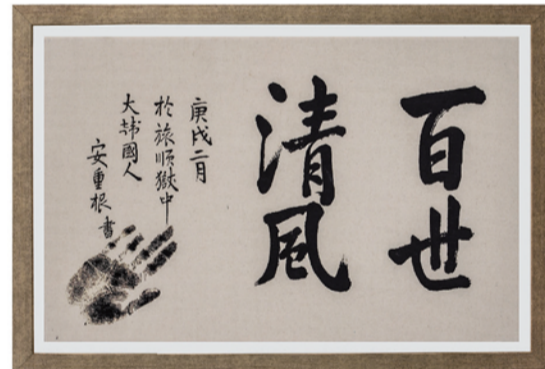 百世
清風
庚戌二月
於旅順獄中
大韓國人
安重根書